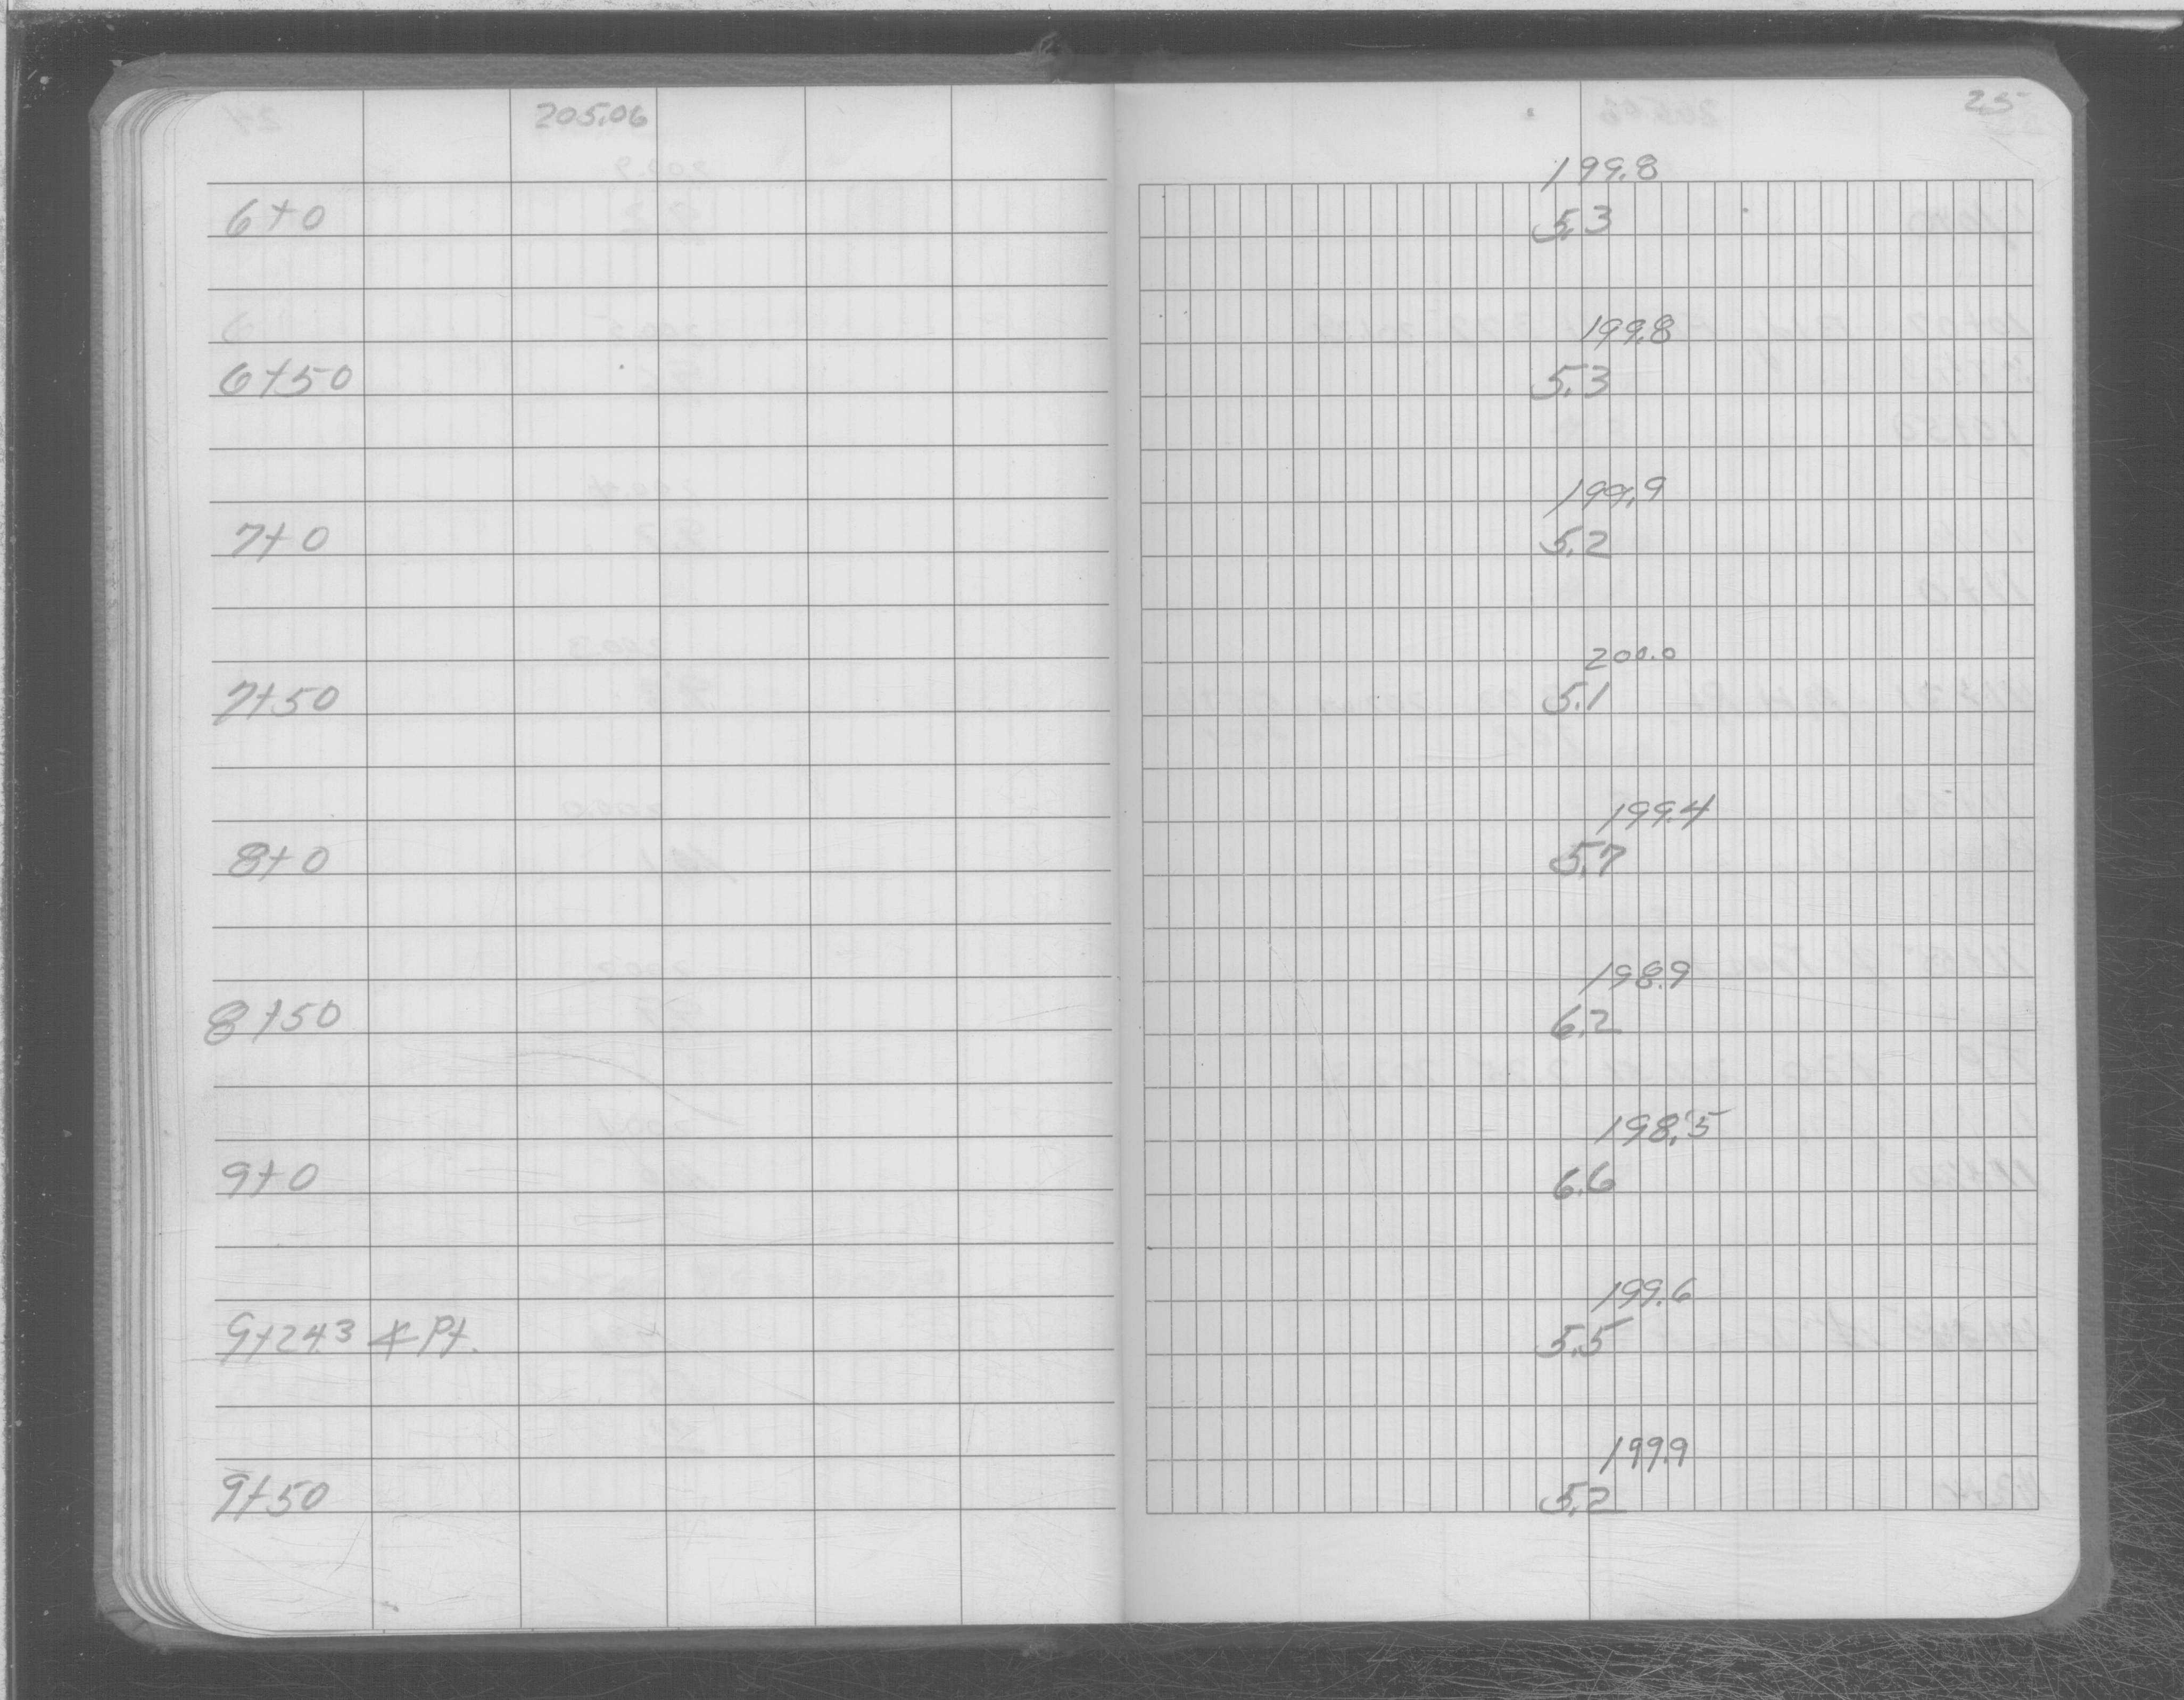 205.06
25
199.8
6+0 5.3
199.8
6+50 5.3
199.9
7+0 5.2
200.0
7+50 5.1
199.4
8+0 5.7
198.9
8+50 6.2
198.5
9+0 6.6
199.6
9+24.3 ∡ Pt. 5.5
199.9
9+50 5.2